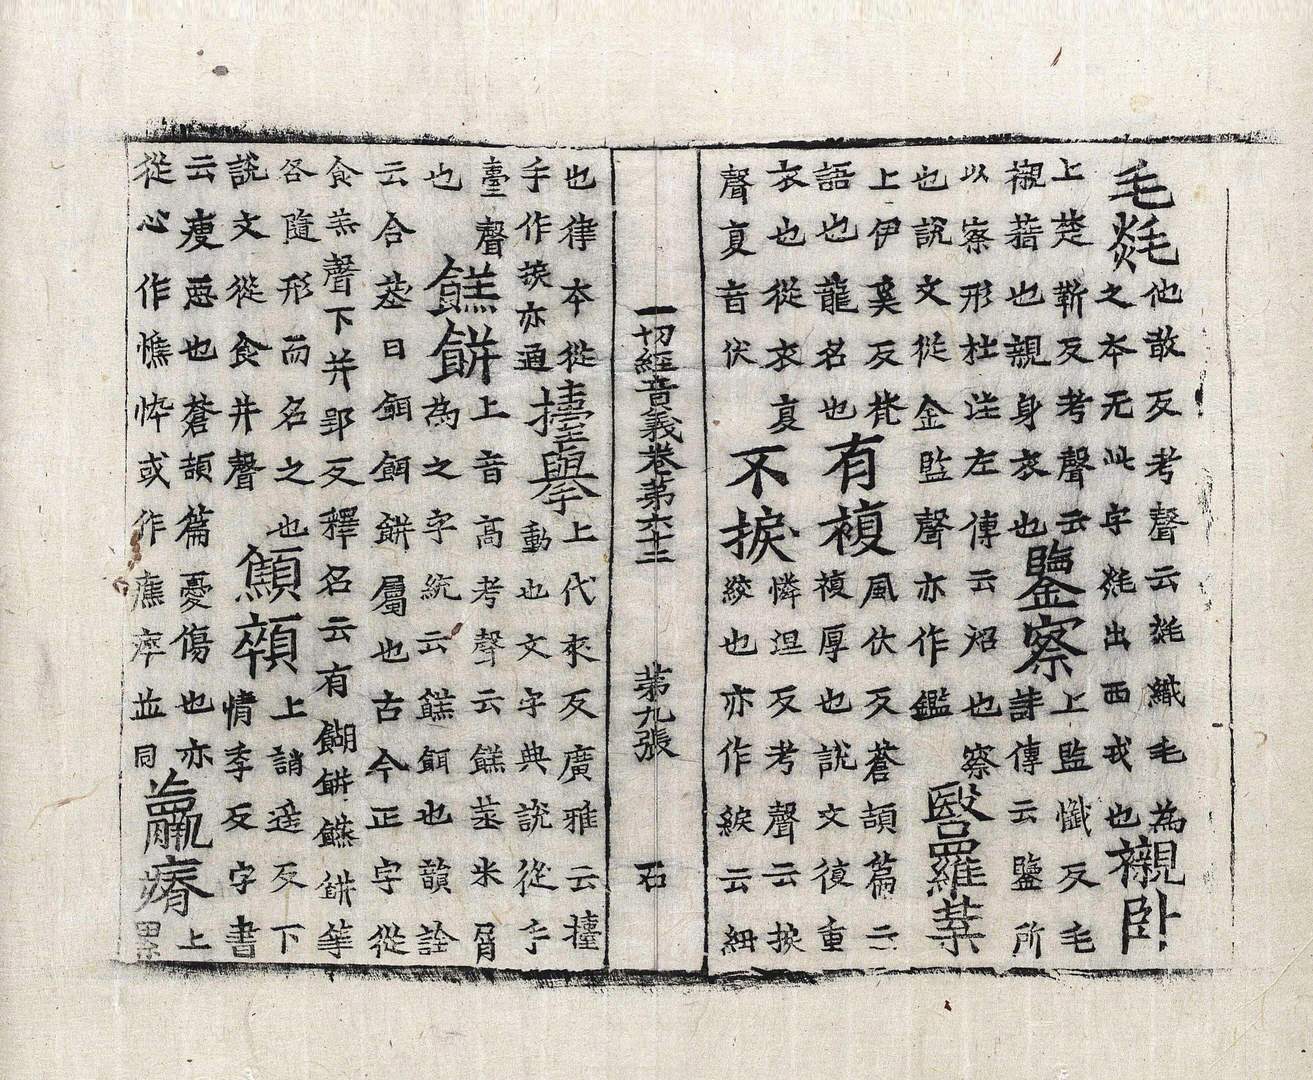 毛毯
他敢反考聲云毯織毛為
之本无此字毯出西戎也
襯卧
上楚靳反考聲云
襯藉也親身衣也
鑒察
上監懺反毛
詩傳云鑒所
以察形杜注左傳云炤也察
也說文從金監聲亦作鑑
羅葉
上伊奚反梵
語也龍名也
有複
風伏反蒼頡篇云
複厚也說文復重
衣也從衣复
聲复音伏
不捩
憐涅反考聲云捩
絞也亦作綟云紐
一切經音義卷苐六十二 苐九張 石
也律本從
手作捩亦通
擡舉
上代來反廣雅云擡
動也文字典說從手
臺聲
也
餻餅
上音高考聲云餻蒸米屑
為之字統云餻餌也韻詮
云合蒸曰餌餌餅屬也古今正字從
食羔聲下并郢反釋名云有餬餅餅等
各隨形而名之也
說文從食并聲
顦顇
上誚遥反下
情季反字書
云瘦惡也蒼頡篇憂傷也亦
從心作憔悴或作癄瘁並同
羸瘠
上
累